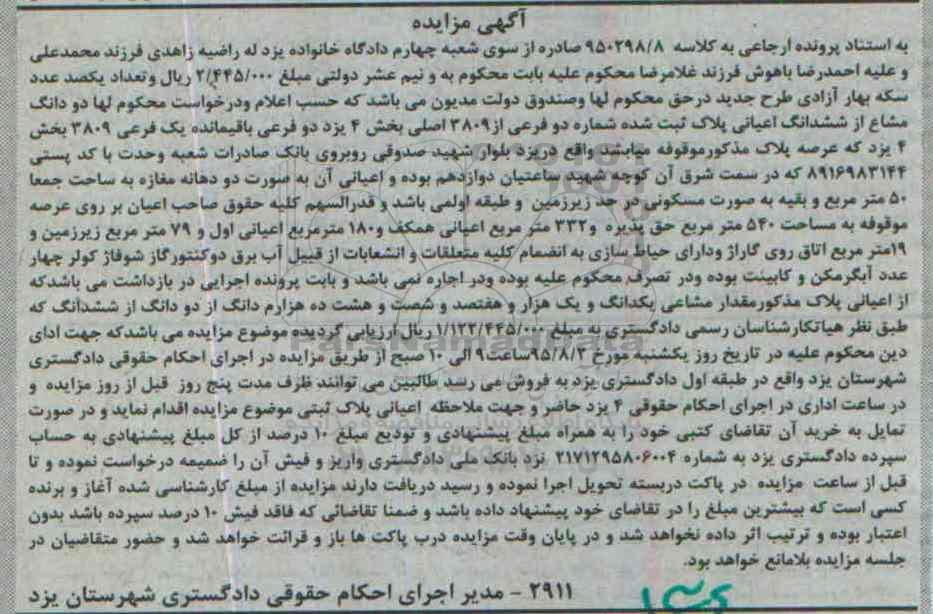 آگهی مزایده
به استناد پرونده ارجاعی به کلاسه ۹۵۰۲۹۸/۸ صادره از سوی شعبه چهارم دادگاه خانواده یزد له راضیه زاهدی فرزند محمدعلی
و علیه احمدرضا باهوش فرزند غلامرضا محکوم علیه بابت محکوم به و نیم عشر دولتی مبلغ ۲/۴۴۵/۰۰۰ ریال وتعداد یکصد عدد
سکه بهار آزادی طرح جدید درحق محکوم لها وصندوق دولت مدیون می باشد که حسب اعلام ودرخواست محکوم لها دو دانگ
مشاع از ششدانگ اعیانی پلاک ثبت شده شماره دو فرعی از۳۸۰۹ اصلی بخش ۴ یزد دو فرعی باقیمانده یک فرعی ۳۸۰۹ بخش
۴ یزد که عرصه پلاک مذکورموقوفه میباشد واقع دریزد بلوار شهید صدوقی روبروی بانک صادرات شعبه وحدت با کد پستی
۸۹۱۶۹۸۳۱۴۴ که در سمت شرق آن کوچه شهید ساعتیان دوازدهم بوده و اعیانی آن به صورت دو دهانه مغازه به ساحت جمعا
۵۰ متر مربع و بقیه به صورت مسکونی در حد زیرزمین و طبقه اولمی باشد و قدرالسهم کلیه حقوق صاحب اعیان بر روی عرصه
موقوفه به مساحت ۵۴۰ متر مربع حق پذیره و۳۳۲ متر مربع اعیانی همکف و۱۸۰ مترمربع اعیانی اول و ۷۹ متر مربع زیرزمین و
۱۹متر مربع اتاق روی گاراژ ودارای حیاط سازی به انضمام کلیه متعلقات و انشعابات از قبیل آب برق دوکنتورگاز شوفاژ کولر چهار
عدد آبگرمکن و کابینت بوده ودر تصرف محکوم علیه بوده ودر اجاره نمی باشد و بابت پرونده اجرایی در بازداشت می باشدکه
از اعیانی پلاک مذکورمقدار مشاعی یکدانگ و یک هزار و هفتصد و شصت و هشت ده هزارم دانگ از دو دانگ از ششدانگ که
طبق نظر هیاتکارشناسان رسمی دادگستری به مبلغ ۱/۱۲۲/۴۴۵/۰۰۰ ریال ارزیابی گردیده موضوع مزایده می باشدکه جهت ادای
دین محکوم علیه در تاریخ روز یکشنبه مورخ ۹۵/۸/۳ساعت۹ الی ۱۰ صبح از طریق مزایده در اجرای احکام حقوقی دادگستری
شهرستان یزد واقع در طبقه اول دادگستری یزد به فروش می رسد طالبین می توانند ظرف مدت پنج روز قبل از روز مزایده و
در ساعت اداری در اجرای احکام حقوقی ۴ یزد حاضر و جهت ملاحظه اعیانی پلاک ثبتی موضوع مزایده اقدام نماید و در صورت
تمایل به خرید آن تقاضای کتبی خود را به همراه مبلغ پیشنهادی و تودیع مبلغ ۱۰ درصد از کل مبلغ پیشنهادی به حساب
سپرده دادگستری یزد به شماره ۲۱۷۱۲۹۵۸۰۶۰۰۴ نزد بانک ملی دادگستری واریز و فیش آن را ضمیمه درخواست نموده و تا
قبل از ساعت مزایده در پاکت دربسته تحویل اجرا نموده و رسید دریافت دارند مزایده از مبلغ کارشناسی شده آغاز و برنده
کسی است که بیشترین مبلغ را در تقاضای خود پیشنهاد داده باشد و ضمنا تقاضائی که فاقد فیش ۱۰ درصد سپرده باشد بدون
اعتبار بوده و ترتیب اثر داده نخواهد شد و در پایان وقت مزایده درب پاکت ها باز و قرائت خواهد شد و حضور متقاضیان در
جلسه مزایده بلامانع خواهد بود.
۲۹۱۱ - مدیر اجرای احکام حقوقی دادگستری شهرستان یزد
ParsNamadData